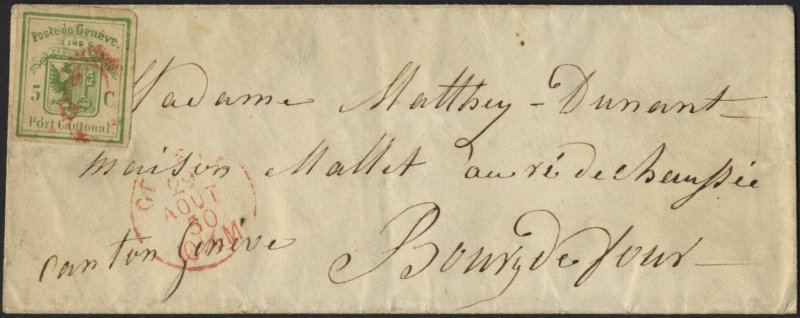 Poste de Genève.
5 C
Port Cantonal.
Madame Matthey-Dunant
maison Mallet au ré de chaussée
canton Genève Bourg de four
29
AOUT
50